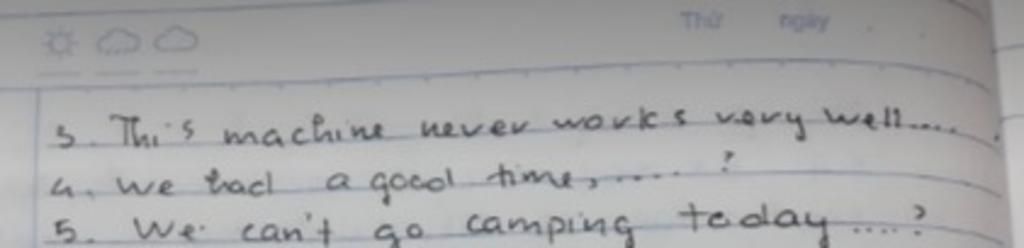 Thứ ngày
3. This machine never works very well....
4. We had a good time, ..... ?
5. We can't go camping today ....?